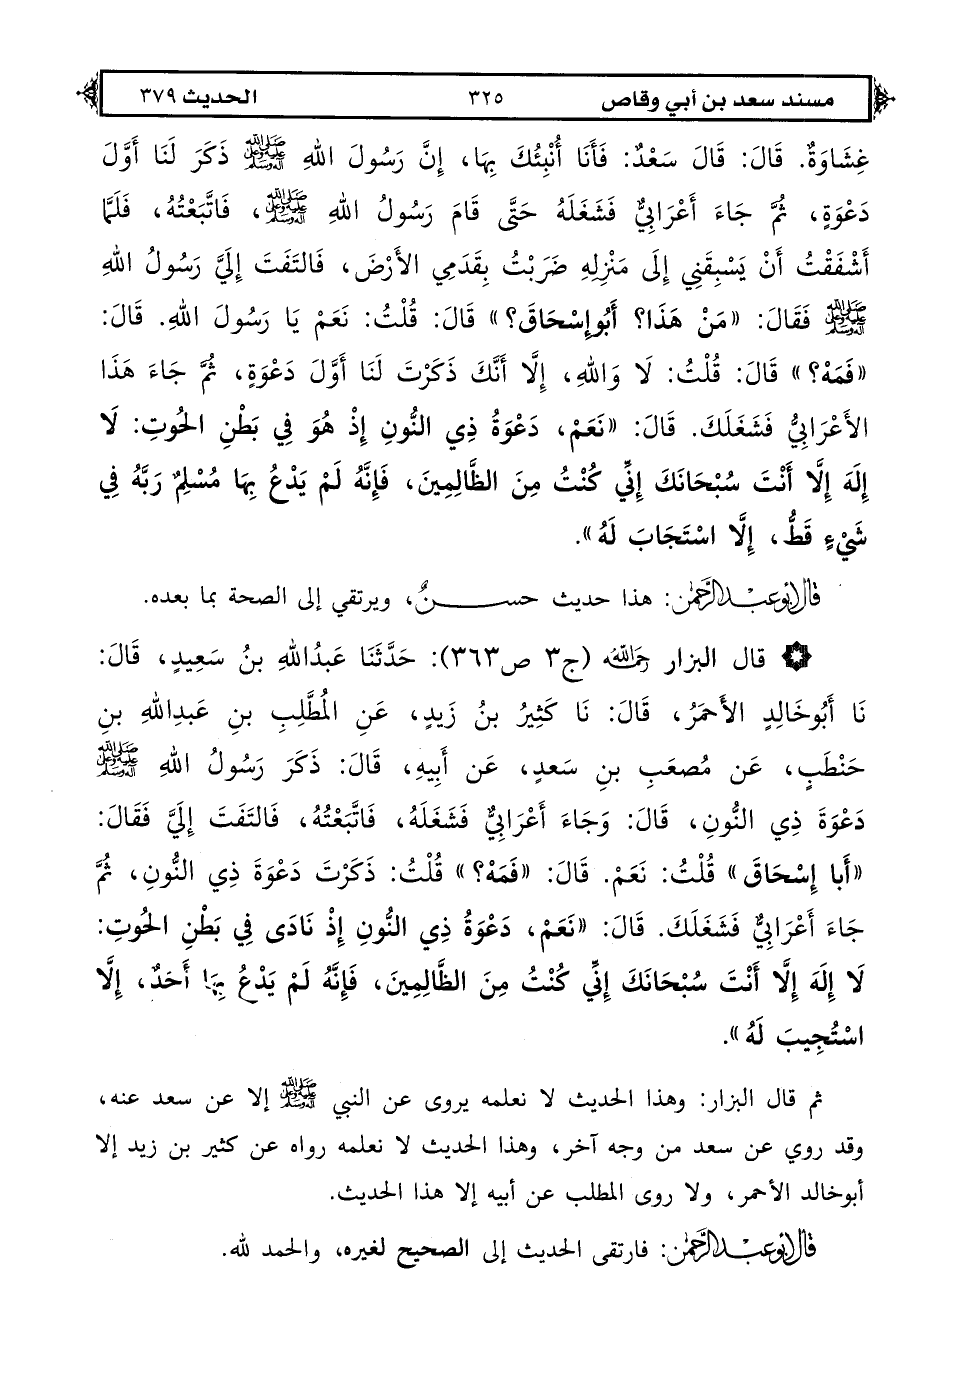 مسند سعد بن أبي وقاص ٣٢٥ الحديث ٣٧٩
غِشَاوَةٌ. قَالَ: قَالَ سَعْدٌ: فَأَنَا أُنْبِئُكَ بِهَا، إِنَّ رَسُولَ اللهِ ﷺ ذَكَرَ لَنَا أَوَّلَ
دَعْوَةٍ، ثُمَّ جَاءَ أَعْرَابِيٌّ فَشَغَلَهُ حَتَّى قَامَ رَسُولُ اللهِ ﷺ، فَاتَّبَعْتُهُ، فَلَمَّا
أَشْفَقْتُ أَنْ يَسْبِقَنِي إِلَى مَنْزِلِهِ ضَرَبْتُ بِقَدَمِي الأَرْضَ، فَالتَفَتَ إِلَيَّ رَسُولُ اللهِ
ﷺ فَقَالَ: «مَنْ هَذَا؟ أَبُو إِسْحَاقَ؟» قَالَ: قُلْتُ: نَعَمْ يَا رَسُولَ اللهِ. قَالَ:
«فَمَهْ؟» قَالَ: قُلْتُ: لَا وَاللهِ، إِلَّا أَنَّكَ ذَكَرْتَ لَنَا أَوَّلَ دَعْوَةٍ، ثُمَّ جَاءَ هَذَا
الأَعْرَابِيُّ فَشَغَلَكَ. قَالَ: «نَعَمْ، دَعْوَةُ ذِي النُّونِ إِذْ هُوَ فِي بَطْنِ الحُوتِ: لَا
إِلَهَ إِلَّا أَنْتَ سُبْحَانَكَ إِنِّي كُنْتُ مِنَ الظَّالِمِينَ، فَإِنَّهُ لَمْ يَدْعُ بِهَا مُسْلِمٌ رَبَّهُ فِي
شَيْءٍ قَطُّ، إِلَّا اسْتَجَابَ لَهُ».
قال أبو عبد الرحمن: هذا حديث حســـــنٌ، ويرتقي إلى الصحة بما بعده.
قال البزار رحمه الله (ج٣ ص٣٦٣): حَدَّثَنَا عَبدُاللهِ بنُ سَعِيدٍ، قَالَ:
نَا أَبُو خَالِدٍ الأَحمَرُ، قَالَ: نَا كَثِيرُ بنُ زَيدٍ، عَنِ المُطَّلِبِ بنِ عَبدِاللهِ بنِ
حَنْطَبٍ، عَن مُصعَبِ بنِ سَعدٍ، عَن أَبِيهِ، قَالَ: ذَكَرَ رَسُولُ اللهِ ﷺ
دَعْوَةَ ذِي النُّونِ، قَالَ: وَجَاءَ أَعْرَابِيٌّ فَشَغَلَهُ، فَاتَّبَعْتُهُ، فَالتَفَتَ إِلَيَّ فَقَالَ:
«أَبا إِسْحَاقَ» قُلْتُ: نَعَمْ. قَالَ: «فَمَهْ؟» قُلْتُ: ذَكَرْتَ دَعْوَةَ ذِي النُّونِ، ثُمَّ
جَاءَ أَعْرَابِيٌّ فَشَغَلَكَ. قَالَ: «نَعَمْ، دَعْوَةُ ذِي النُّونِ إِذْ نَادَى فِي بَطْنِ الحُوتِ:
لَا إِلَهَ إِلَّا أَنْتَ سُبْحَانَكَ إِنِّي كُنْتُ مِنَ الظَّالِمِينَ، فَإِنَّهُ لَمْ يَدْعُ بِهَا أَحَدٌ، إِلَّا
اسْتُجِيبَ لَهُ».
ثم قال البزار: وهذا الحديث لا نعلمه يروى عن النبي ﷺ إلا عن سعد عنه،
وقد روي عن سعد من وجه آخر، وهذا الحديث لا نعلمه رواه عن كثير بن زيد إلا
أبو خالد الأحمر، ولا روى المطلب عن أبيه إلا هذا الحديث.
قال أبو عبد الرحمن: فارتقى الحديث إلى الصحيح لغيره، والحمد لله.